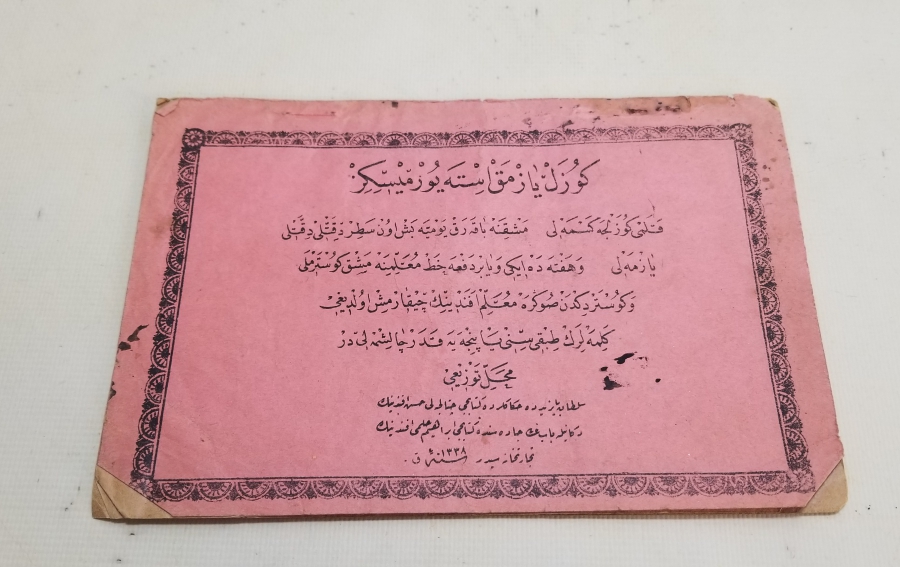 كوزل يازمق استه يورميسكز
قلمى كوزلجه كسمه لى مشقنه باقه رق يوميه بش اون سطر دقتلى دقتلى
يازمه لى وهفته ده ايكى ويا بر دفعه خط معلمنه مشق كوسترملى
وكوستردكدن صوكره معلم افندينك چيقارمش اولديغى
كلمه لرك طبقى سنى يا پنجه يه قدر چالشمه لى در
محل توزيعى
سلطان بايزيدده حكاكلرده كتابجى چنالجه لى حسن افندينك
وبابعالى جاده سنده كتابجى ابراهيم حلمى افندينك
تجارتخانه سيدر سنه ١٣٣٨